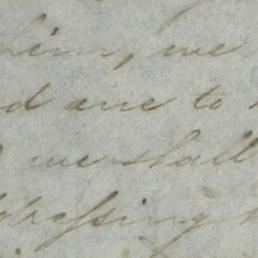 him, we
d are to
we shall
dressing